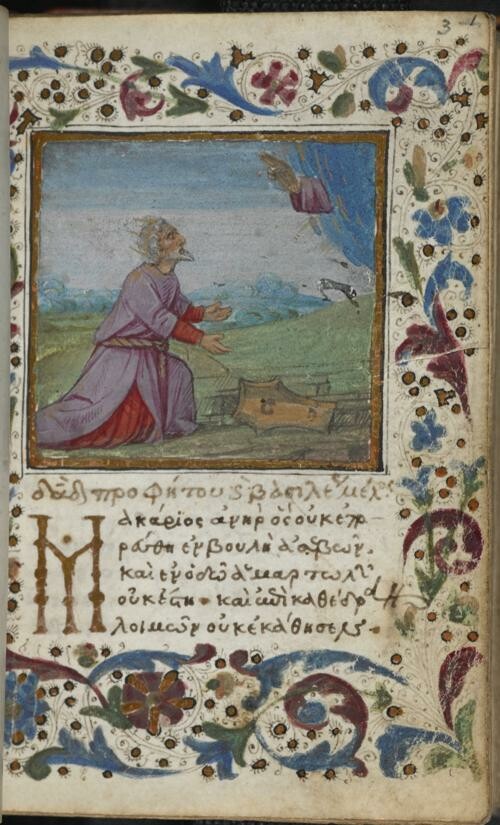 3 1
δα̅δ προφήτου κ βασιλέως μέλος
Μακάριος ἀνὴρ ὃς οὐκ ἐπο
ρεύθη ἐν βουλῇ ἀσεβῶν.
καὶ ἐν ὁδῷ ἁμαρτωλῶ
οὐκ ἔστη · καὶ ἐπὶ καθέδρα
λοιμῶν οὐκ ἐκάθησεν ·